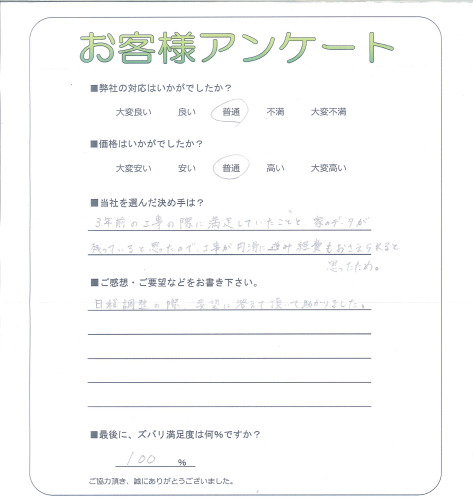 お客様アンケート
■弊社の対応はいかがでしたか？
大変良い 良い 普通 不満 大変不満
■価格はいかがでしたか？
大変安い 安い 普通 高い 大変高い
■当社を選んだ決め手は？
3年前の工事の際に満足していたことと 家のデータが
残っていると思ったので、工事が円滑に進み 経費もおさえられると
思ったため。
■ご感想・ご要望などをお書き下さい。
日程調整の際 要望に答えて頂いて助かりました。
■最後に、ズバリ満足度は何%ですか？
100 %
ご協力頂き、誠にありがとうございました。